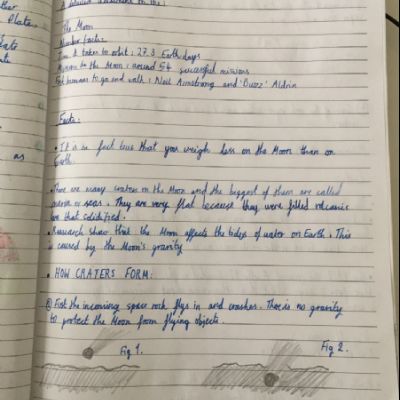 ther
Plates
A detailed assessment on the :
The Moon
Number facts:
Time it takes to orbit : 27.3 Earth days
Missions to the Moon : around 54 successful missions
First humans to go and walk : Neil Armstrong and 'Buzz' Aldrin
Facts:
• It is in fact true that you weigh less on the Moon than on
Earth.
as
• There are many craters on the Moon and the biggest of them are called
maria or seas. They are very flat because they were filled volcanic
that solidified.
• Research show that the Moon affects the tides of water on Earth. This
is caused by the Moon's gravity
• HOW CRATERS FORM:
First the incoming space rock flys in and crashes. There is no gravity
to protect the Moon from flying objects.
Fig 1.
Fig 2.